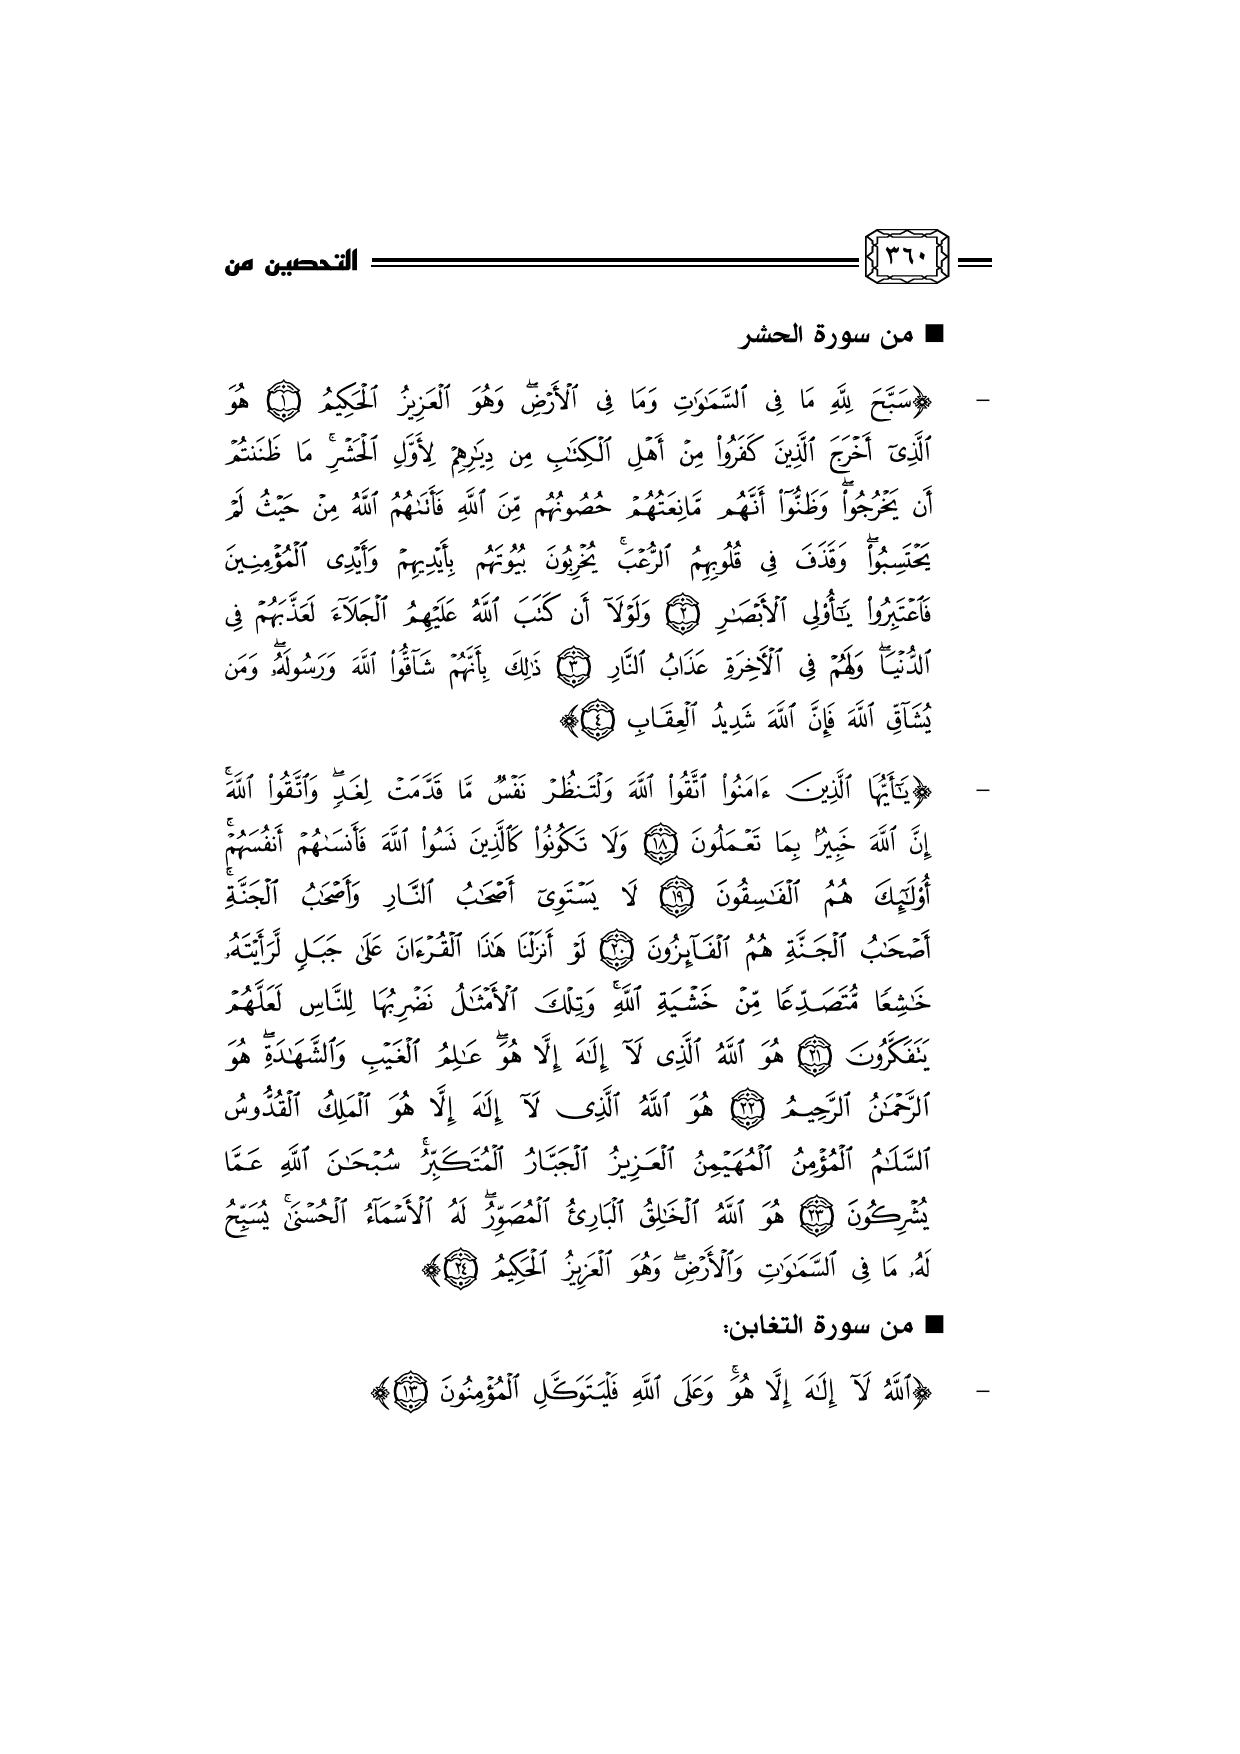 ٣٦٠ التحصين من
■ من سورة الحشر
– ﴿سَبَّحَ لِلَّهِ مَا فِى ٱلسَّمَٰوَٰتِ وَمَا فِى ٱلْأَرْضِۖ وَهُوَ ٱلْعَزِيزُ ٱلْحَكِيمُ ١ هُوَ
ٱلَّذِىٓ أَخْرَجَ ٱلَّذِينَ كَفَرُوا۟ مِنْ أَهْلِ ٱلْكِتَٰبِ مِن دِيَٰرِهِمْ لِأَوَّلِ ٱلْحَشْرِۚ مَا ظَنَنتُمْ
أَن يَخْرُجُوا۟ۖ وَظَنُّوٓا۟ أَنَّهُم مَّانِعَتُهُمْ حُصُونُهُم مِّنَ ٱللَّهِ فَأَتَىٰهُمُ ٱللَّهُ مِنْ حَيْثُ لَمْ
يَحْتَسِبُوا۟ۖ وَقَذَفَ فِى قُلُوبِهِمُ ٱلرُّعْبَۚ يُخْرِبُونَ بُيُوتَهُم بِأَيْدِيهِمْ وَأَيْدِى ٱلْمُؤْمِنِينَ
فَٱعْتَبِرُوا۟ يَٰٓأُو۟لِى ٱلْأَبْصَٰرِ ٢ وَلَوْلَآ أَن كَتَبَ ٱللَّهُ عَلَيْهِمُ ٱلْجَلَآءَ لَعَذَّبَهُمْ فِى
ٱلدُّنْيَاۖ وَلَهُمْ فِى ٱلْءَاخِرَةِ عَذَابُ ٱلنَّارِ ٣ ذَٰلِكَ بِأَنَّهُمْ شَآقُّوا۟ ٱللَّهَ وَرَسُولَهُۥۖ وَمَن
يُشَآقِّ ٱللَّهَ فَإِنَّ ٱللَّهَ شَدِيدُ ٱلْعِقَابِ ٤﴾
– ﴿يَٰٓأَيُّهَا ٱلَّذِينَ ءَامَنُوا۟ ٱتَّقُوا۟ ٱللَّهَ وَلْتَنظُرْ نَفْسٌ مَّا قَدَّمَتْ لِغَدٍۖ وَٱتَّقُوا۟ ٱللَّهَۚ
إِنَّ ٱللَّهَ خَبِيرٌۢ بِمَا تَعْمَلُونَ ١٨ وَلَا تَكُونُوا۟ كَٱلَّذِينَ نَسُوا۟ ٱللَّهَ فَأَنسَىٰهُمْ أَنفُسَهُمْۚ
أُو۟لَٰٓئِكَ هُمُ ٱلْفَٰسِقُونَ ١٩ لَا يَسْتَوِىٓ أَصْحَٰبُ ٱلنَّارِ وَأَصْحَٰبُ ٱلْجَنَّةِۚ
أَصْحَٰبُ ٱلْجَنَّةِ هُمُ ٱلْفَآئِزُونَ ٢٠ لَوْ أَنزَلْنَا هَٰذَا ٱلْقُرْءَانَ عَلَىٰ جَبَلٍ لَّرَأَيْتَهُۥ
خَٰشِعًا مُّتَصَدِّعًا مِّنْ خَشْيَةِ ٱللَّهِۚ وَتِلْكَ ٱلْأَمْثَٰلُ نَضْرِبُهَا لِلنَّاسِ لَعَلَّهُمْ
يَتَفَكَّرُونَ ٢١ هُوَ ٱللَّهُ ٱلَّذِى لَآ إِلَٰهَ إِلَّا هُوَۖ عَٰلِمُ ٱلْغَيْبِ وَٱلشَّهَٰدَةِۖ هُوَ
ٱلرَّحْمَٰنُ ٱلرَّحِيمُ ٢٢ هُوَ ٱللَّهُ ٱلَّذِى لَآ إِلَٰهَ إِلَّا هُوَ ٱلْمَلِكُ ٱلْقُدُّوسُ
ٱلسَّلَٰمُ ٱلْمُؤْمِنُ ٱلْمُهَيْمِنُ ٱلْعَزِيزُ ٱلْجَبَّارُ ٱلْمُتَكَبِّرُۚ سُبْحَٰنَ ٱللَّهِ عَمَّا
يُشْرِكُونَ ٢٣ هُوَ ٱللَّهُ ٱلْخَٰلِقُ ٱلْبَارِئُ ٱلْمُصَوِّرُۖ لَهُ ٱلْأَسْمَآءُ ٱلْحُسْنَىٰۚ يُسَبِّحُ
لَهُۥ مَا فِى ٱلسَّمَٰوَٰتِ وَٱلْأَرْضِۖ وَهُوَ ٱلْعَزِيزُ ٱلْحَكِيمُ ٢٤﴾
■ من سورة التغابن:
– ﴿ٱللَّهُ لَآ إِلَٰهَ إِلَّا هُوَۚ وَعَلَى ٱللَّهِ فَلْيَتَوَكَّلِ ٱلْمُؤْمِنُونَ ١٣﴾